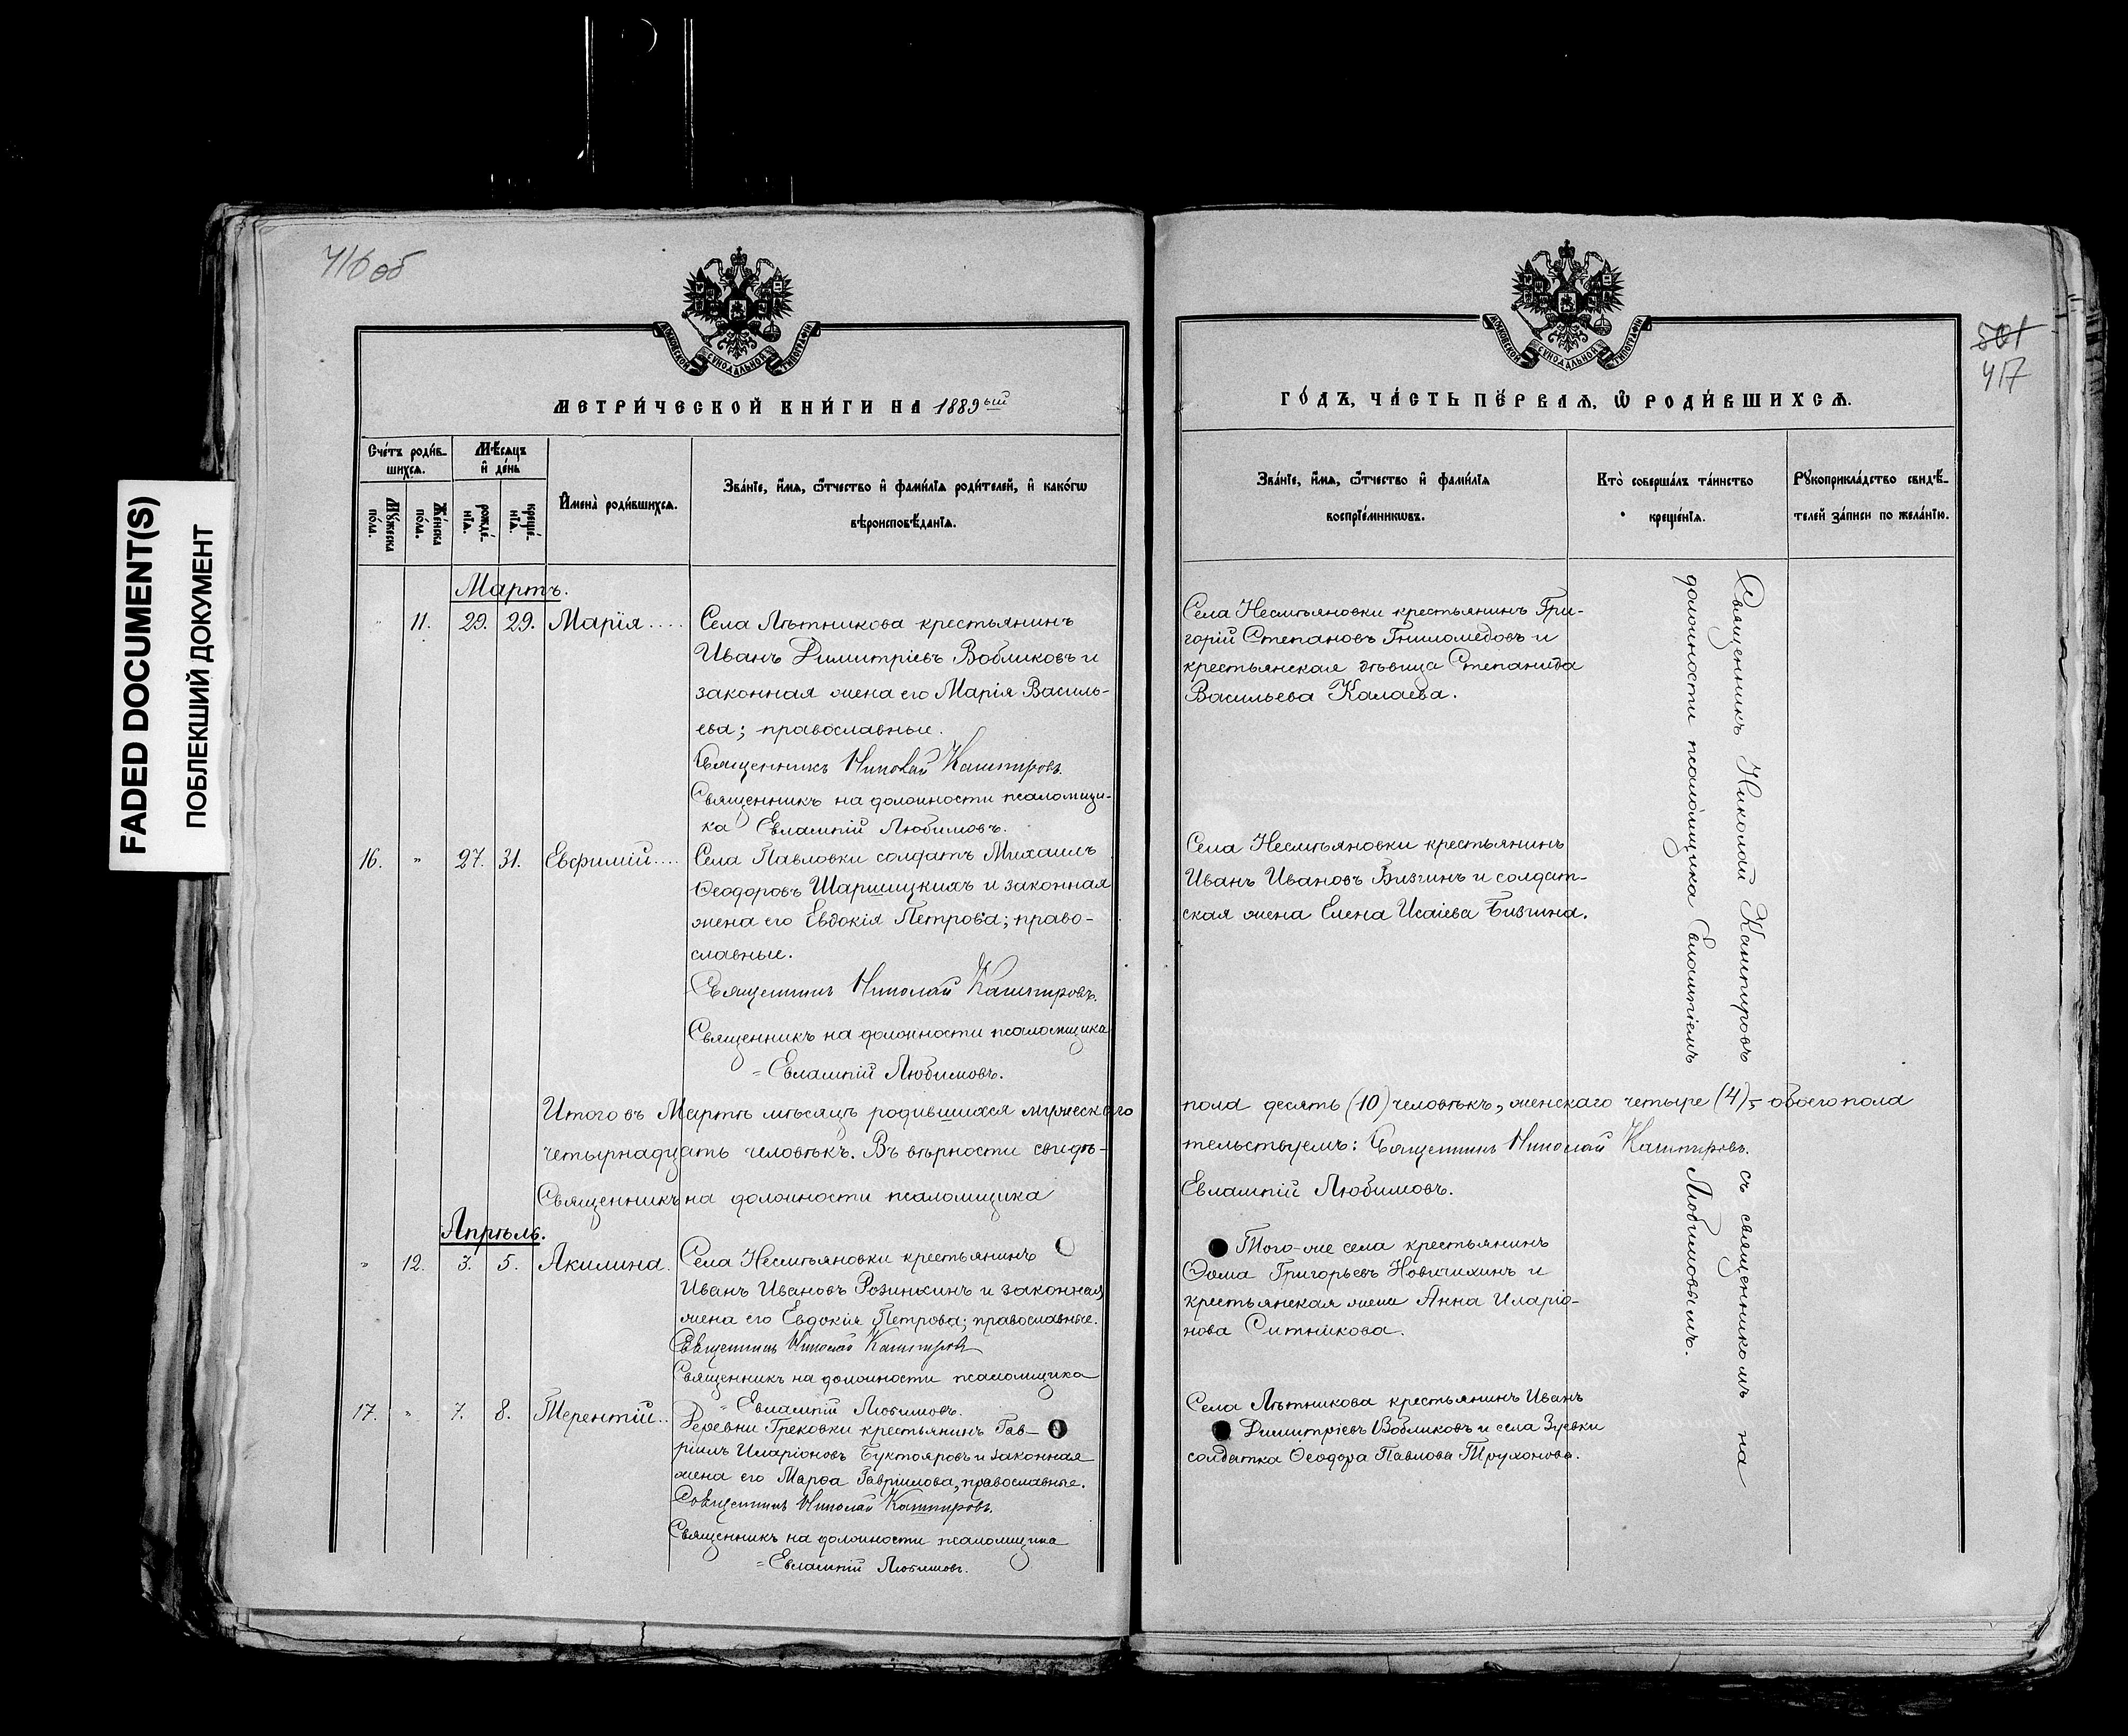 FADED DOCUMENT(S)
ПОБЛЕКШИЙ ДОКУМЕНТ
416 об
МОСКОВСКОЙ СѴНОДАЛЬНОЙ ТИПОГРАФІИ
МЕТРИ́ЧЕСКОЙ КНИ́ГИ НА 1889ый
Сче́тъ роди́в-
шихсѧ.
Мѣсѧцъ
и҆ де́нь
Му́жеска
по́ла.
Же́нска
по́ла.
рожде́-
нїѧ.
креще́-
нїѧ.
И҆мена̀ роди́вшихсѧ.
Зва́нїе, и҆́мѧ, ѻ҆́тчество и҆ фами́лїѧ роди́телей, и҆ како́гѡ
вѣроисповѣданїѧ.
Мартъ.
" 11. 29. 29. Марія....
Села Лѣтникова крестьянинъ
Иванъ Димитріевъ Вобликовъ и
законная жена его Марія Василь-
ева; православные.
Священникъ Николай Кашпировъ.
Священникъ на должности псаломщи-
ка Евлампій Любимовъ.
16. " 27. 31. Евфимій....
Села Павловки солдатъ Михаилъ
Ѳеодоровъ Шаршицкихъ и законная
жена его Евдокія Петрова; право-
славные.
Священникъ Николай Кашпировъ.
Священникъ на должности псаломщика
Евлампій Любимовъ.
Итого въ Мартѣ мѣсяцѣ родившихся мужескаго
четырнадцать человѣкъ. Въ вѣрности свидѣ-
Священникъ на должности псаломщика
Апрѣль.
" 12. 3. 5. Акилина.
Села Несмѣяновки крестьянинъ
Иванъ Ивановъ Розинкинъ и законная
жена его Евдокія Петрова; православные.
Священникъ Николай Кашпировъ
Священникъ на должности псаломщика
Евлампій Любимовъ.
17. " 7. 8. Терентій..
Деревни Грековки крестьянинъ Гав-
ріилъ Иларіоновъ Буктояровъ и законная
жена его Марѳа Гавріилова, православные.
Священникъ Николай Кашпировъ.
Священникъ на должности псаломщика
Евлампій Любимовъ.
МОСКОВСКОЙ СѴНОДАЛЬНОЙ ТИПОГРАФІИ
501
417
ГО́ДЪ, ЧА́СТЬ ПЕ́РВАѦ, Ѽ РОДИ́ВШИХСѦ.
Зва́нїе, и҆́мѧ, ѻ҆́тчество и҆ фами́лїѧ
воспрїе́мникѡвъ.
Кто̀ соверша́лъ та́инство
креще́нїѧ.
Рꙋкоприкла́дство свидѣ́-
телей за́писи по жела́нїю.
Села Несмѣяновки крестьянинъ Гри-
горій Степановъ Гниломедовъ и
крестьянская дѣвица Степанида
Васильева Калаева.
Села Несмѣяновки крестьянинъ
Иванъ Ивановъ Бизинъ и солдат-
ская жена Елена Исаіева Бизина.
пола десять (10) человѣкъ, женскаго четыре (4), обоего пола
тельствуемъ: Священникъ Николай Кашпировъ.
Евлампій Любимовъ.
Того-же села крестьянинъ
Ѳома Григорьевъ Новичихинъ и
крестьянская жена Анна Иларіо-
нова Ситникова.
Села Лѣтникова крестьянинъ Иванъ
Димитріевъ Вобликовъ и села Зуевки
солдатка Ѳеодора Павлова Труханова.
Священникъ Николай Кашпировъ съ священникомъ на
должности псаломщика Евлампіемъ Любимовымъ.